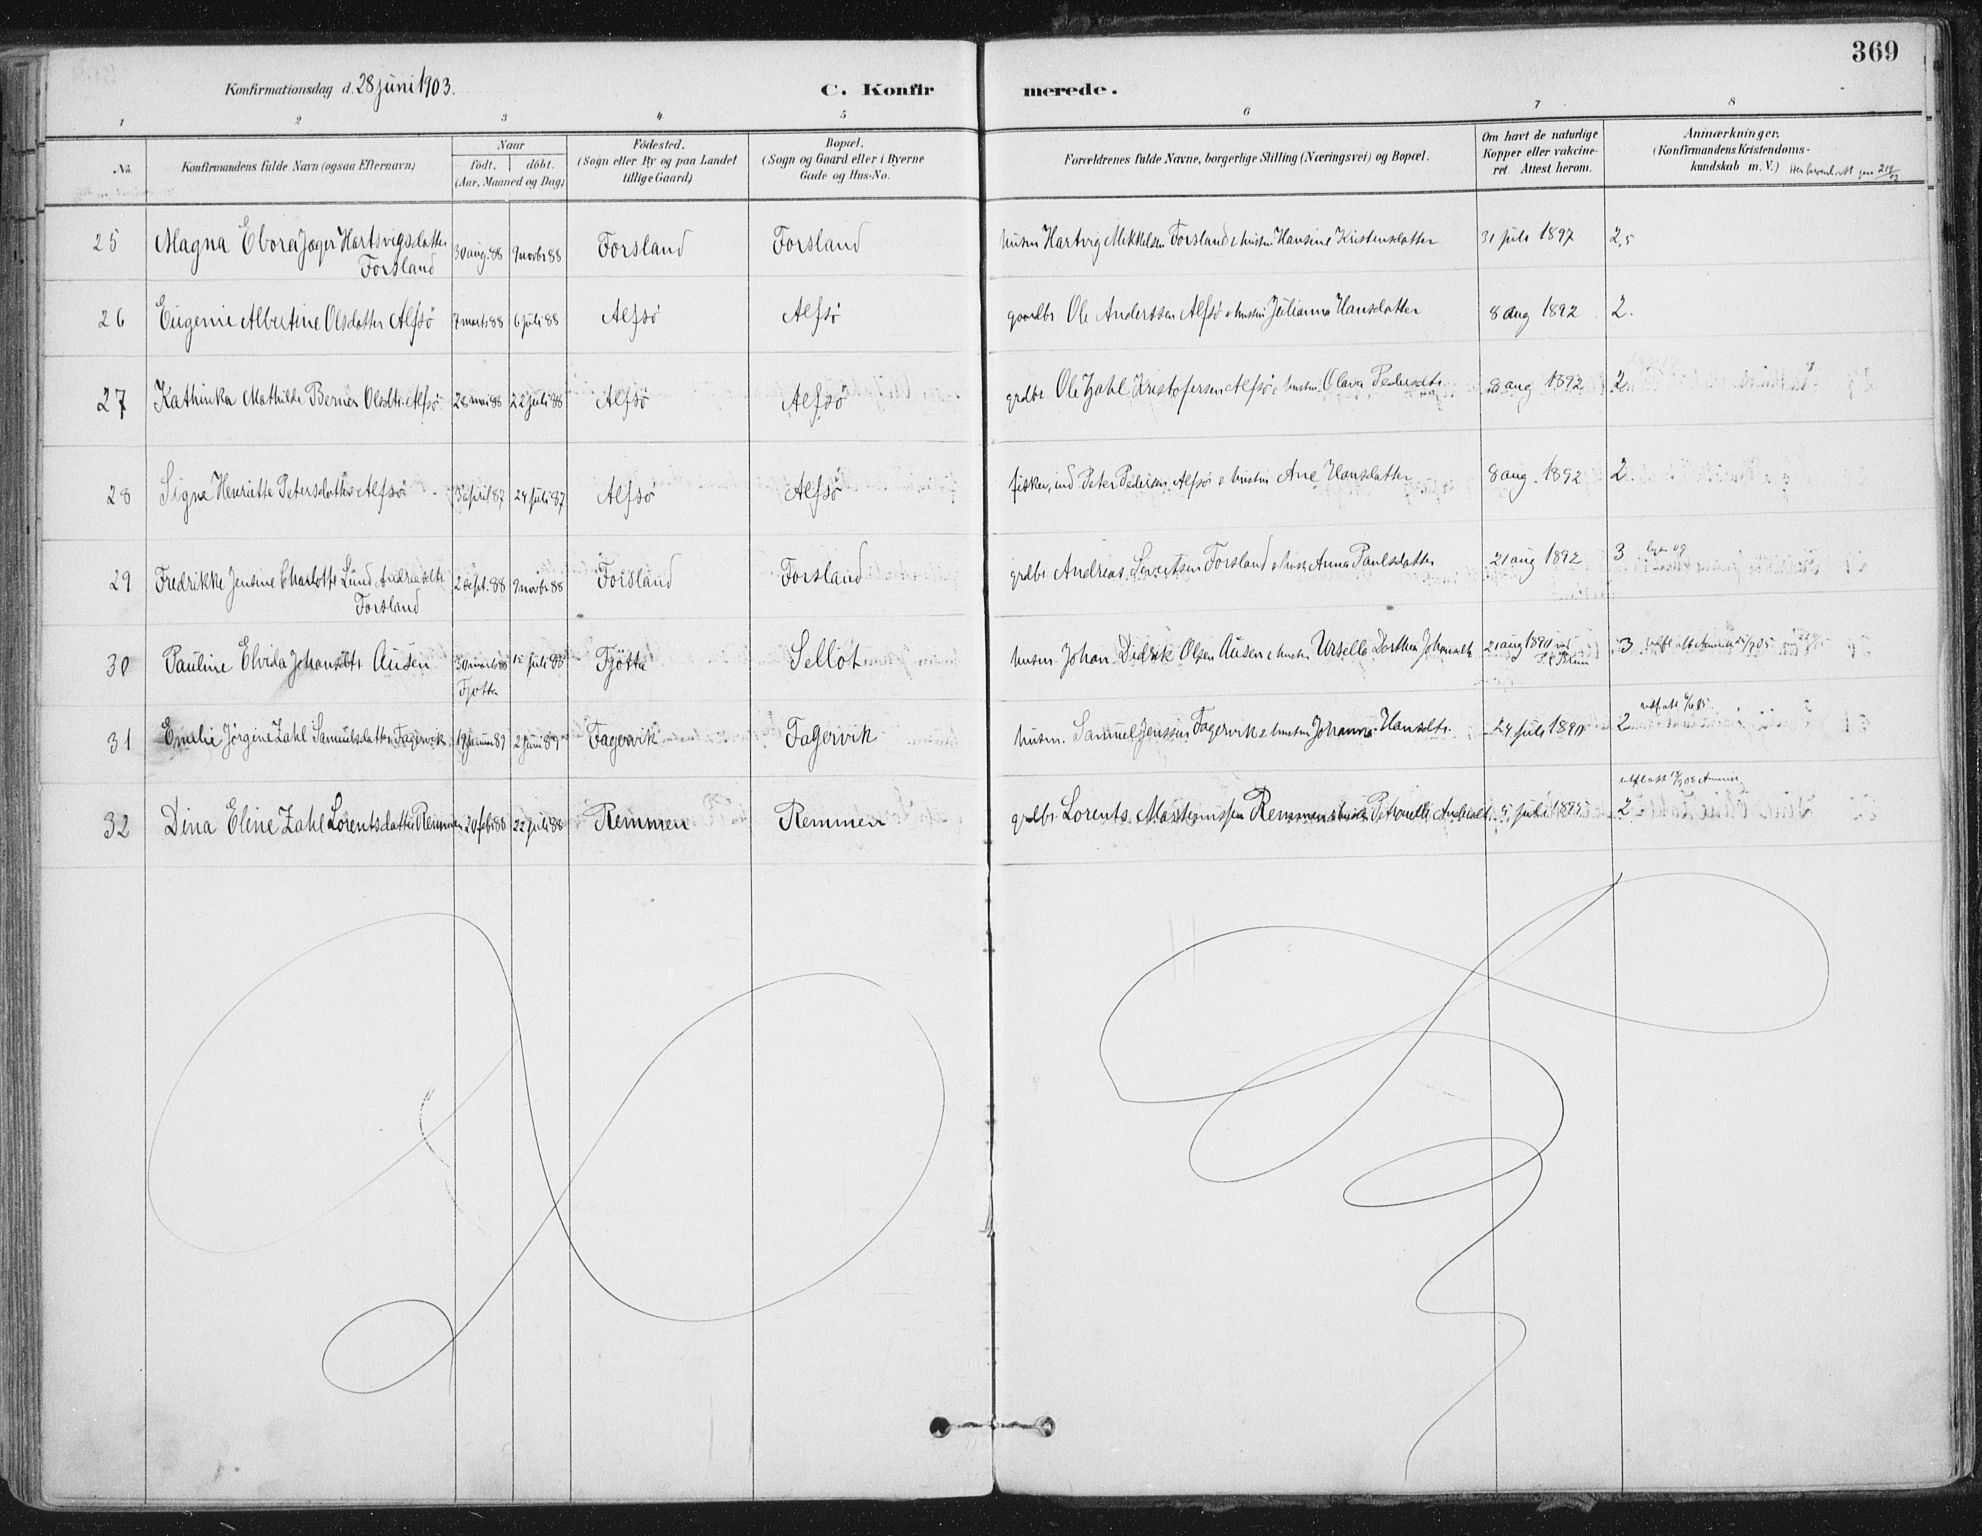 369
Konfirmationsdag d. 28 juni 1903.
C. Konfirmerede.
1 2 3 4 5 6 7 8
No. Konfirmandens fulde Navn (ogsaa Efternavn) Naar födt. döbt. (Aar, Maaned og Dag) Födested. (Sogn eller By og paa Landet tillige Gaard) Bopæl. (Sogn og Gaard eller i Byerne Gade og Hus-No. Forældrenes fulde Navne, borgerlige Stilling (Næringsvei) og Bopæl. Om havt de naturlige Kopper eller vakcineret. Attest herom. Anmærkninger. (Konfirmandens Kristendomskundskab m. V.)
25 Magna Ebora Jæger Hartvigsdatter Forsland 30 aug. 88 9 novbr 88 Forsland Forsland husm Hartvig Mikkelsen Forsland & hustru Hansine Kristensdatter 31 juli 1897 2,5
26 Eugenie Albertine Olsdatter Alfsø 7 marts 88 6 juli 88 Alfsø Alfsø gaardbr Ole Anderssen Alfsø & hustru Julianna Hansdatter 8 aug 1892 2.
27 Kathinka Mathilde Berner Olsdtr. Alfsø 28 mai 88 22 juli 88 Alfsø Alfsø grdbr Ole Zahl Kristofersen Alfsø & hustru Olava Pedersdtr. 8 aug 1892 2
28 Signe Henriette Petersdatter Alfsø 13 april 87 24 juli 87 Alfsø Alfsø fisker, ind Peter Pedersen Alfsø & hustru Ane Hansdatter 8 aug. 1892 2
29 Fredrikke Jensine Charlotte Lund Andreasdtr. Forsland 2 sept. 88 9 novbr 88 Forsland Forsland grdbr Andreas Sivertsen Forsland & hustr Anna Paulsdatter 21 aug 1892 3
30 Pauline Elvida Johansdtr. Ausen 30 marts 88 Fjøtta 15 juli 88 Tjøtta Sellot husm. Johan Didrik Olsen Ausen & hustru Ursella Dorthea Johansdtr 21 aug 1890 3.
31 Emelie Jørgine Zahl Samuelsdatter Fagervik 19 januar 89 2 juni 89 Fagervik Fagervik husm. Samuel Jenssen Fagervik & hustru Johanna Hansdtr. 24 juli 1890 2
32 Dina Eline Zahl Lorentsdatter Remmen 20 febr 88 22 juli 88 Remmen Remmen grdbr. Lorents Mortenussen Remmen & hustru Petronelle Andersdtr. 5 juli 1895 2